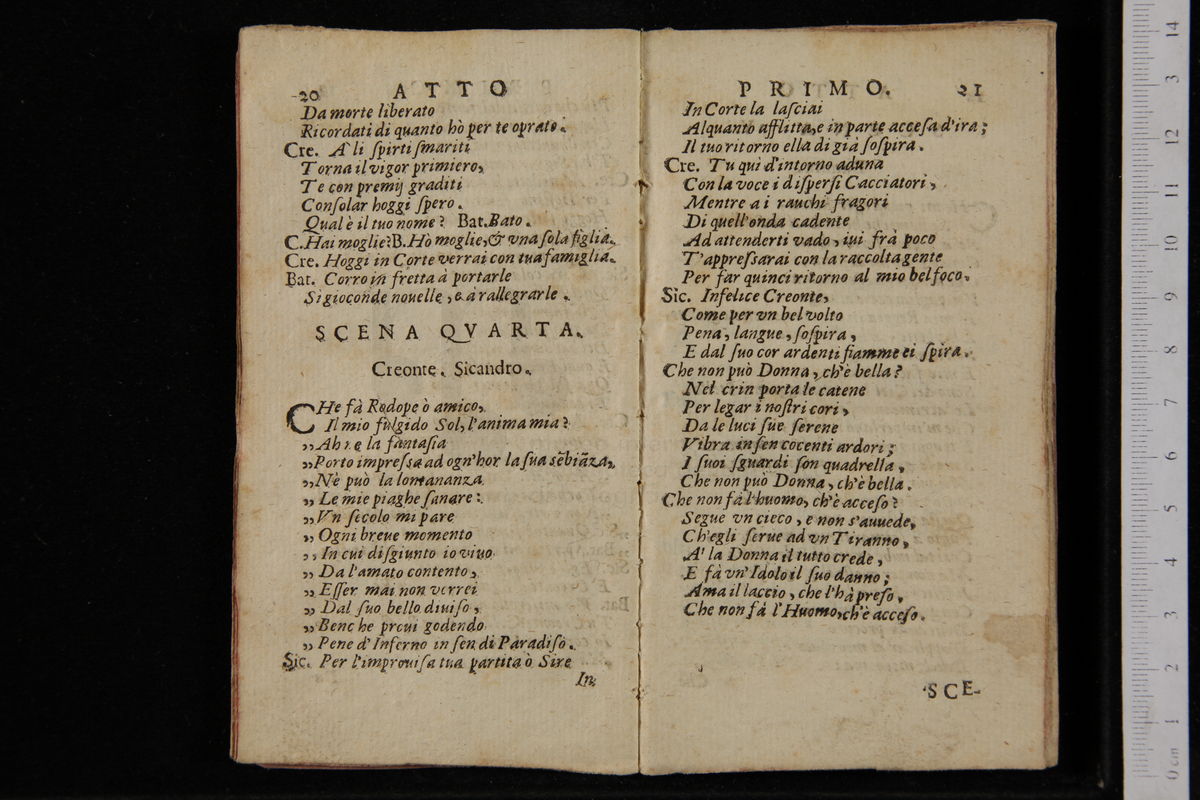 20 ATTO
Da morte liberato
Ricordati di quanto hò per te oprato.
Cre. A' li ſpirti ſmariti
Torna il vigor primiero,
Te con premij graditi
Conſolar hoggi ſpero.
Qual è il tuo nome? Bat. Bato.
C. Hai moglie? B. Hò moglie, & vna ſola figlia.
Cre. Hoggi in Corte verrai con tua famiglia.
Bat. Corro in fretta à portarle
Si gioconde nouelle, e à rallegrarle.
SCENA QVARTA.
Creonte. Sicandro.
CHe fà Rodope ò amico,
Il mio fulgido Sol, l'anima mia?
„ Ah ne la fantaſia
„ Porto impreſsa ad ogn'hor la ſua sẽbiãza,
„ Nè può la lontananza
„ Le mie piaghe ſanare:
„ Vn ſecolo mi pare
„ Ogni breue momento
„ In cui diſgiunto io viuo
„ Da l'amato contento,
„ Eſſer mai non verrei
„ Dal ſuo bello diuiſo,
„ Benche preui godendo
„ Pene d'Inferno in ſen di Paradiſo.
Sic. Per l'improuiſa tua partita ò Sire
In
PRIMO. 21
In Corte la laſciai
Alquanto afflitta, e in parte acceſa d'ira;
Il tuo ritorno ella di già ſoſpira.
Cre. Tu quì d'intorno aduna
Con la voce i diſperſi Cacciatori,
Mentre a i rauchi fragori
Di quell'onda cadente
Ad attenderti vado, iui frà poco
T'appreſsarai con la raccolta gente
Per far quinci ritorno al mio bel foco.
Sic. Infelice Creonte,
Come per vn bel volto
Pena, langue, ſoſpira,
E dal ſuo cor ardenti fiamme ei ſpira.
Che non può Donna, ch'è bella?
Nel crin porta le catene
Per legar i noſtri cori,
Da le luci ſue ſerene
Vibra in ſen cocenti ardori;
I ſuoi ſguardi ſon quadrella,
Che non può Donna, ch'è bella.
Che non fà l'huomo, ch'è acceſo?
Segue vn cieco, e non s'auuede,
Ch'egli ſerue ad vn Tiranno,
A' la Donna il tutto crede,
E fà vn'Idolo il ſuo danno;
Ama il laccio, che l'hà preſo,
Che non fà l'Huomo, ch'è acceſo.
SCE-